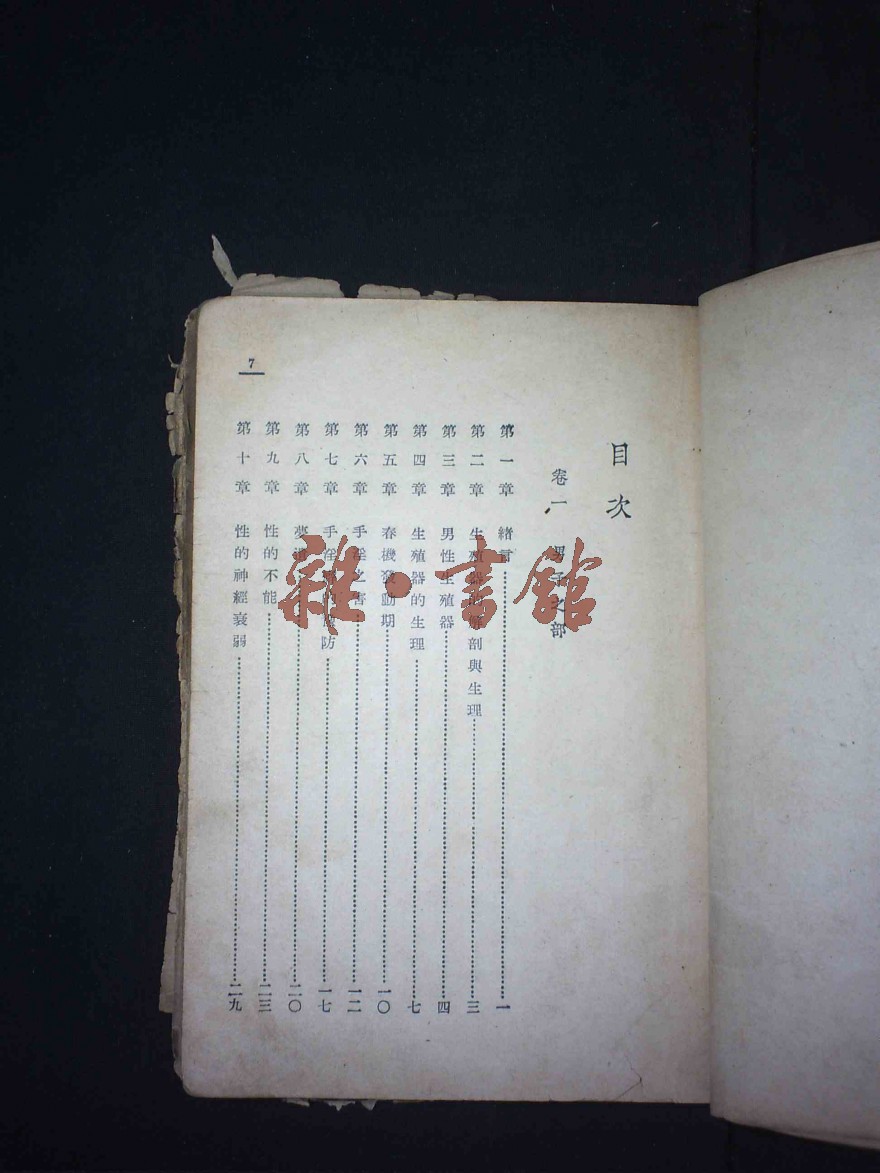 7
目次
卷一 男子之部
第一章 緒言 一
第二章 生殖器的解剖與生理 三
第三章 男性生殖器 四
第四章 生殖器的生理 七
第五章 春機發動期 一〇
第六章 手淫之害 一二
第七章 手淫 防 一七
第八章 夢遺 二〇
第九章 性的不能 二三
第十章 性的神經衰弱 二九
雜·書館